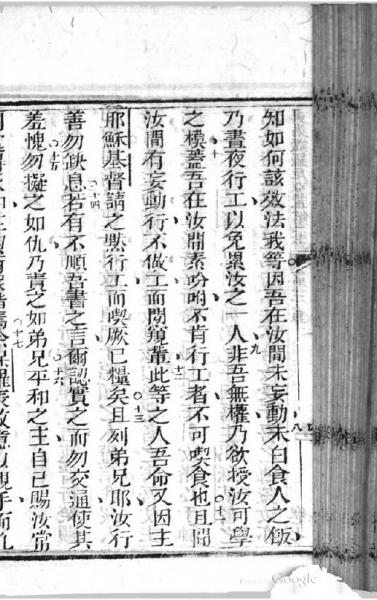 知如何該效法我等因吾在汝間未妄動未白食人之飯
乃晝夜行工以免累汝之一人非吾無權乃欲授汝可學
之模蓋吾在汝間素吩咐不肯行工者不可喫食也且聞
汝間有妄動行不做工而閒窺輩此等之人吾命又因主
耶穌基督請之默行工而喫厥己糧矣且列弟兄耶汝行
善勿缺息若有不順吾書之言爾認實之而勿交通使其
羞愧勿擬之如仇乃責之如弟兄平和之主自己賜汝常
八
九
十
十一
十二
十三
十四
十五
十六
十七
Google